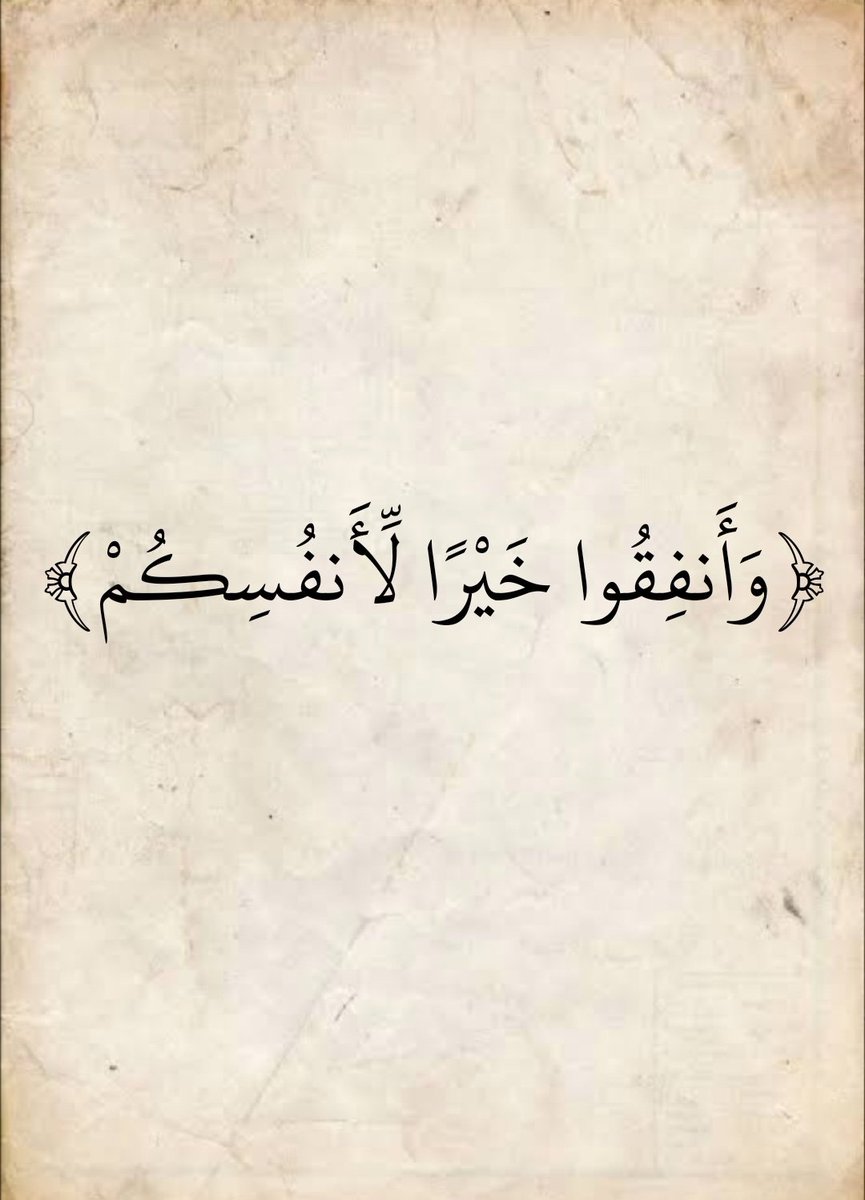 ﴿وَأَنفِقُوا خَيْرًا لِّأَنفُسِكُمْ﴾